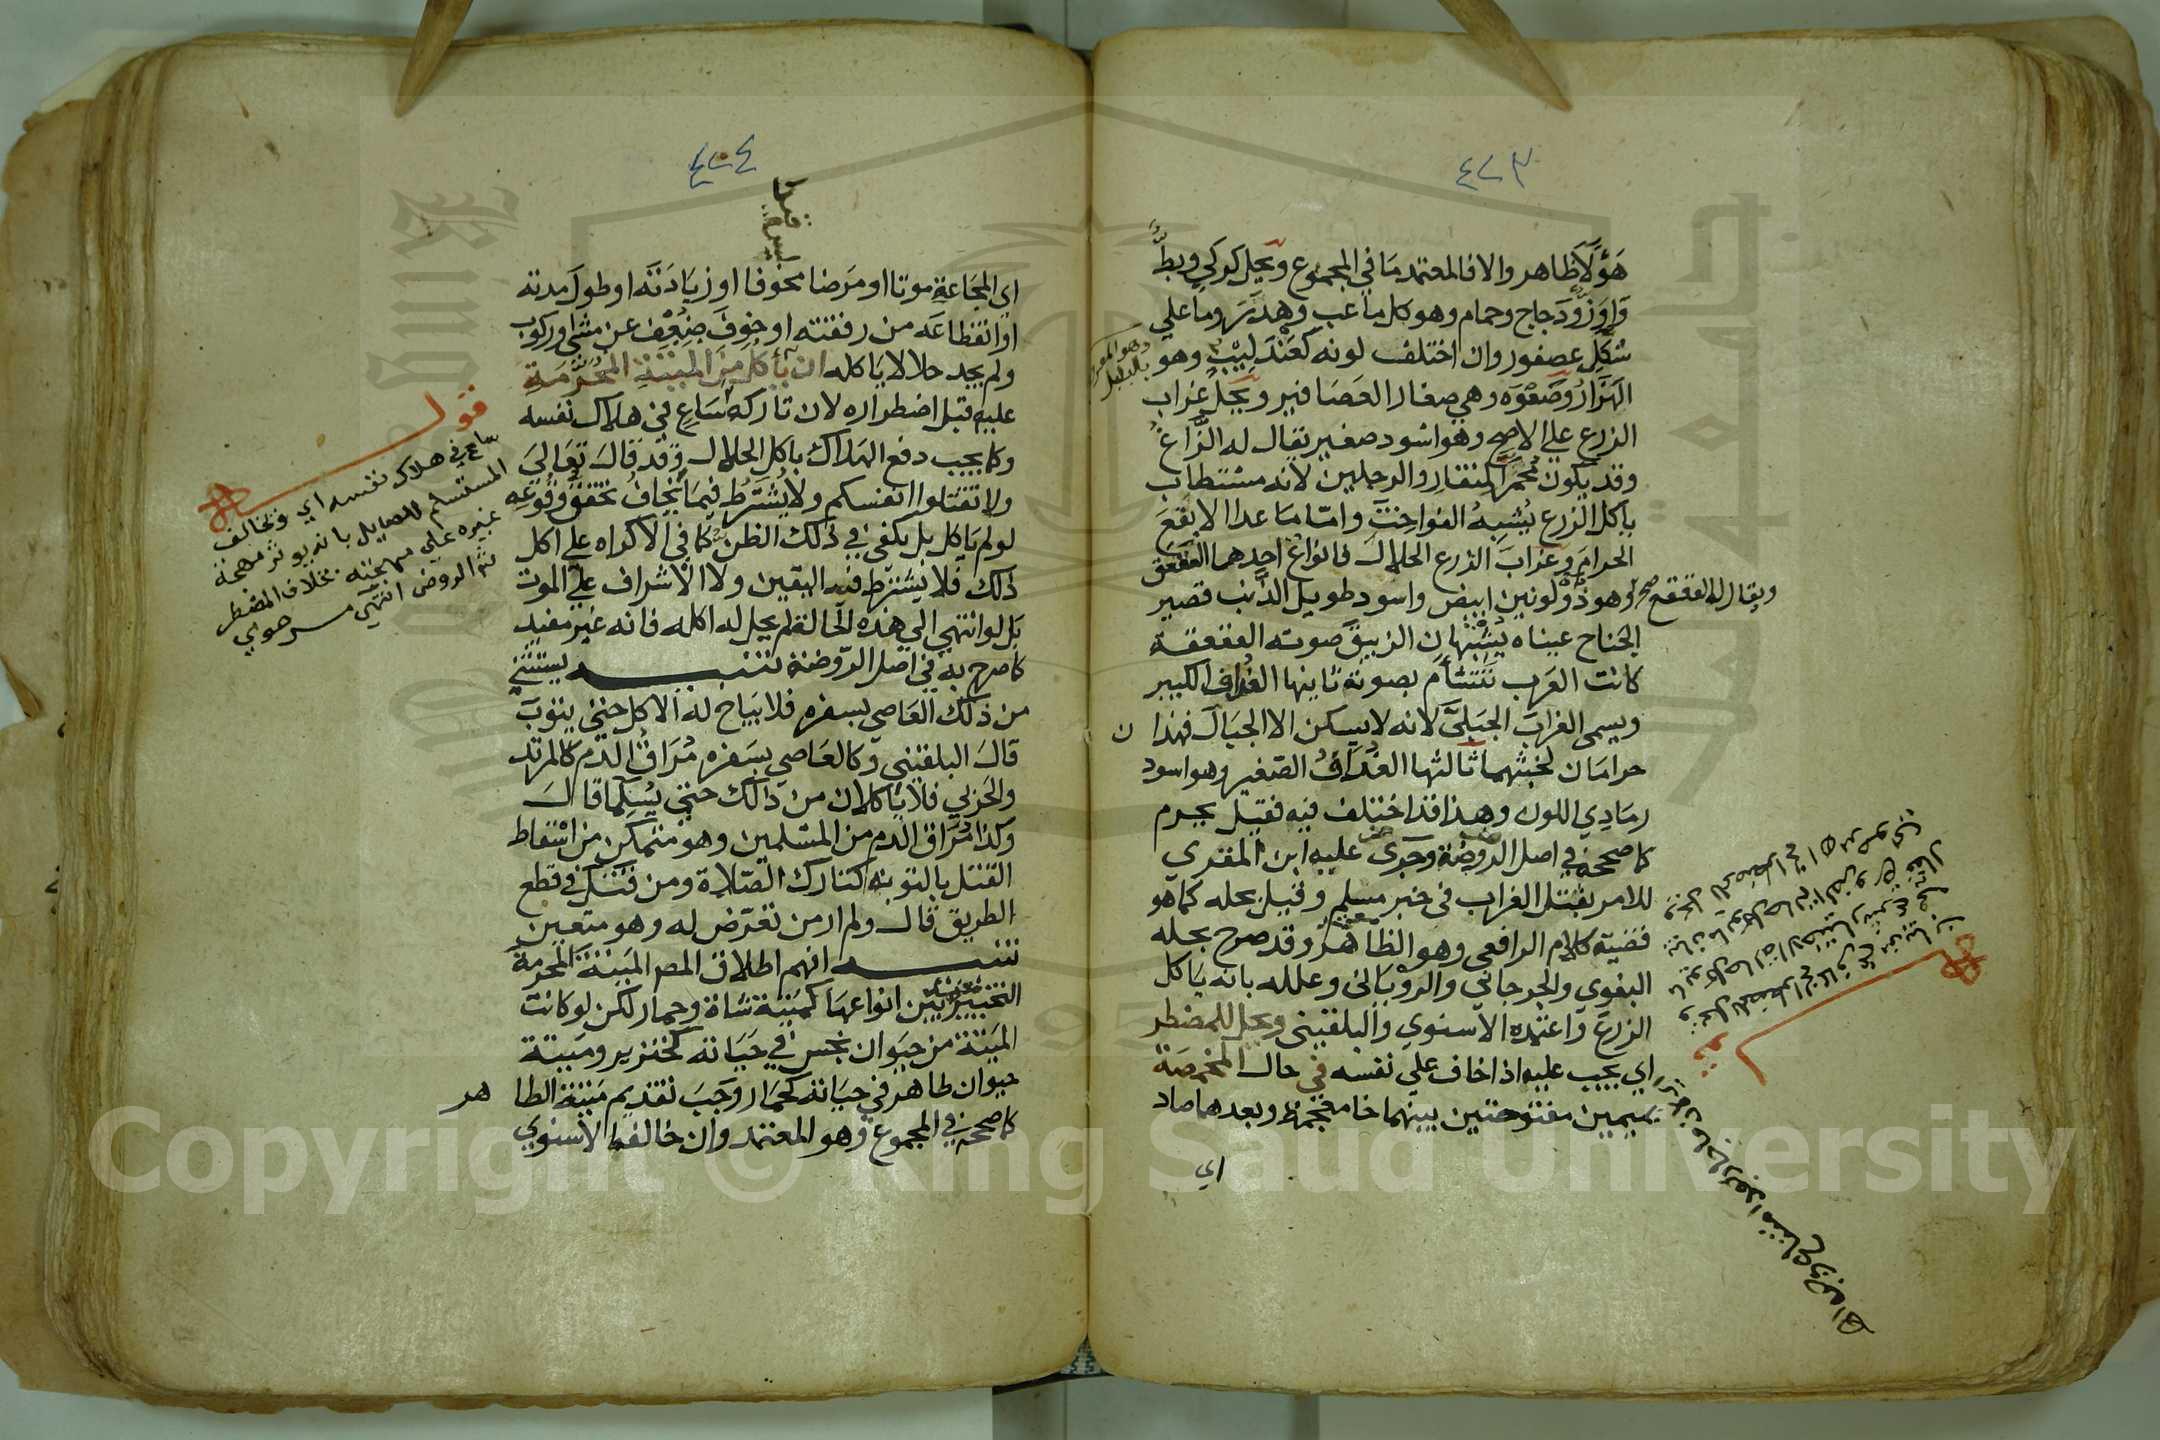 ٤٢٣
هؤلاء ظاهر والا فالمعتمد ما في المجموع ويحل كركي وبط
واوز ودجاج وحمام وهو كل ما عب وهدر وما علي
شكل عصفور وان اختلف لونه كعندليب وهو
الهزار وصعوه وهي صغار العصافير ويحل غراب
الزرع علي الاصح وهو اسود صغير يقال له الزاغ
وقد يكون محمر المنقار والرجلين لانه مستطاب
ياكل الزرع يشبه الفواخت واما ما عدا الابقع
الحرام وغراب الزرع الحلال فانواع احدهما العقعق
ويقال له القعقع صح
وهو ذو لونين ابيض واسود طويل الذنب قصير
الجناح عيناه يشبهان الزيبق صوته العقعقة
كانت العرب تتشأم بصوته ثانيها الغداف الكبير
ويسمى الغراب الجبلي لانه لا يسكن الا الجبال فهذا ن
حرامان لخبثهما ثالثها الغداف الصغير وهو اسود
رمادي اللون وهذا قد اختلف فيه فقيل يحرم
كما صححه في اصل الروضة وجرى عليه ابن المقري
للامر بقتل الغراب في خبر مسلم وقيل بحله كما هو
قضية كلام الرافعي وهو الظاهر وقد صرح بحله
البغوي والجرجاني والروياني وعلله بانه ياكل
الزرع واعتمده الاسنوي والبلقيني ويحل للمضطر
اي يجب عليه اذا خاف علي نفسه في حال المخمصة
بميمين مفتوحتين بينهما خا معجمة وبعدهما صاد
اي
٤٢٤
اي المجاعة موتا او مرضا مخوفا او زيادته او طول مدته
او انقطاعه من رفقته او خوف ضعف عن مشي او ركوب
ولم يجد حلالا ياكله ان يأكل من الميتة المحرمة
عليه قبل اضطراره لان تاركه ساع في هلاك نفسه
وكما يجب دفع الهلاك باكل الحلال وقد قال تعالي
ولا تقتلوا انفسكم ولا يشترط فيما يخاف تحقق وقوعه
لو لم ياكل بل يكفي في ذلك الظن كما في الاكراه علي اكل
ذلك فلا يشترط فيه اليقين ولا الاشراف علي الموت
بل لو انتهي الي هذه الحالة لم يحل له اكله فانه غير مفيد
كما صرح به في اصل الروضة تنبيه يستثني
من ذلك العاصي بسفره فلا يباح له الاكل حتي يتوب
قال البلقيني وكالعاصي بسفره مراق الدم كالمرتد
والحربي فلا ياكلان من ذلك حتي يسلما قال
وكذا مراق الدم من المسلمين وهو متمكن من اسقاط
القتل بالتوبه كتارك الصلاة ومن قتل في قطع
الطريق قال ولم ار من تعرض له وهو متعين
تنبيه افهم اطلاق المص الميتة المحرمة
التخيير بين انواعها كميتة شاة وحمار لكن لو كانت
الميتة من حيوان نجس في حياته كخنزير وميتة
حيوان طاهر في حياته كحمار وجب تقديم ميتة الطا هر
كما صححه في المجموع وهو المعتمد وان خالفه الاسنوي
قوله
ساع في هلاك نفسه اي وتخالف
المستسلم للصايل بانه يوثر مهجة
غيره علي مهجته بخلاف المضطر
شم الروض انتهي مرحومي
Copyright © King Saud University